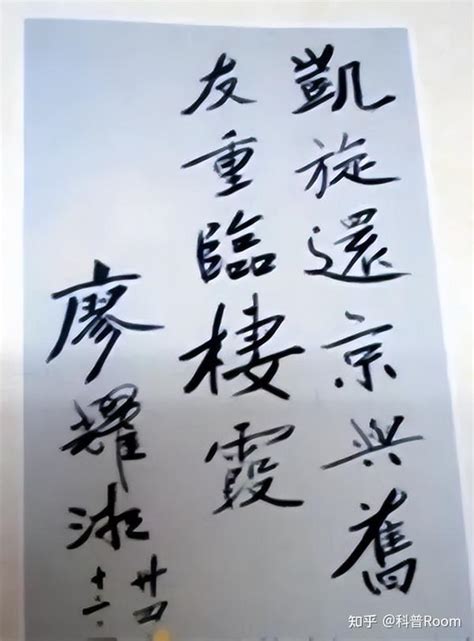 凱旋還京與舊
友重臨棲霞
廖耀湘
廿四
十二
知乎 @科普Room